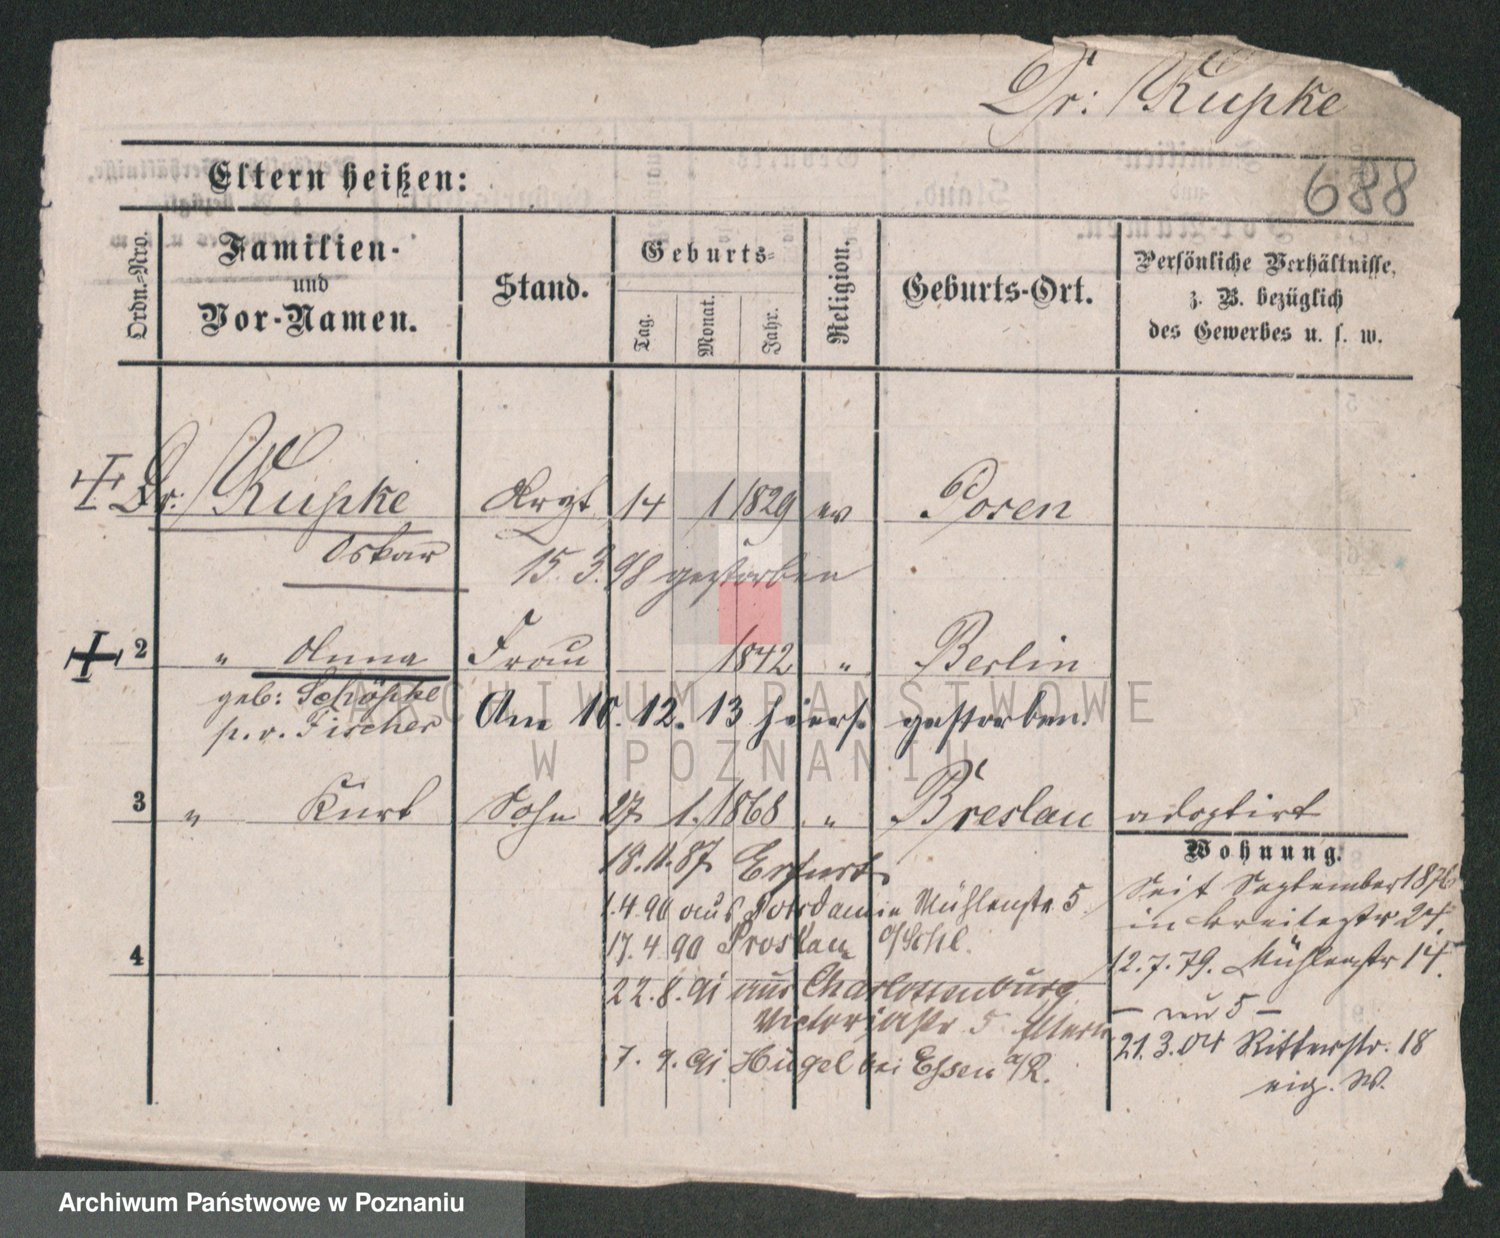 Dr: Kupke
688
Eltern heißen:
Ordn.-Nro.
Familien-
und
Vor-Namen.
Stand.
Geburts-
Tag.
Monat.
Jahr.
Religion.
Geburts-Ort.
Persönliche Verhältnisse,
z. B. bezüglich
des Gewerbes u. s. w.
Dr: Kupke Arzt 14 1 1829 ev Posen
Oskar 15. 3. 98 gestorben
2 " Anna Frau 1842 " Berlin
geb: Schöpke
p. v. Fischer Am 10. 12. 13 hiers. gestorben.
3 " Kurt Sohn 27 1. 1868 " Breslau adoptirt
Wohnung.
18.11.87 Erfurt
1.4.90 aus Potsdam in Mühlenstr. 5
17.4.90 Proskau o/Schl.
4
22.8.91 aus Charlottenburg
Victoriastr 5 Eltern
7. 9. 91 Hügel bei Essen a/R.
Seit September 1876
in Breitestr 24.
12.7.79. Mühlenstr 14.
— nun 5 —
21.3.04 Ritterstr. 18
eig. W.
ARCHIWUM PAŃSTWOWE
W POZNANIU
Archiwum Państwowe w Poznaniu